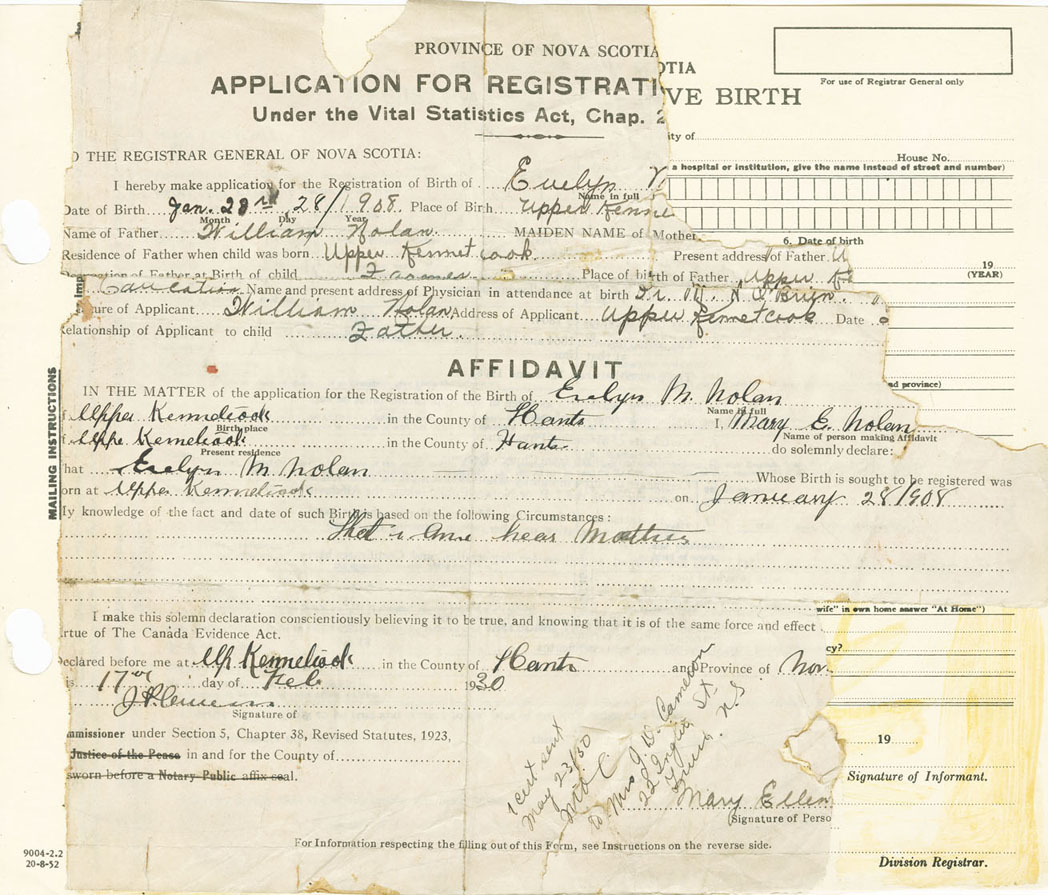 PROVINCE OF NOVA SCOTIA
OTIA
For use of Registrar General only
APPLICATION FOR REGISTRATI
VE BIRTH
Under the Vital Statistics Act, Chap. 2
ity of
House No.
O THE REGISTRAR GENERAL OF NOVA SCOTIA:
a hospital or institution, give the name instead of street and number)
I hereby make application for the Registration of Birth of Evelyn
Name in full
Date of Birth Jan. 28 1908. Place of Birth Upper Kenne
Month Day Year
Name of Father William Nolan. MAIDEN NAME of Mother
6. Date of birth
Residence of Father when child was born Upper Kennetcook Present address of Father U
19
(YEAR)
of Father at Birth of child Farmer Place of birth of Father Upper Ke
Name and present address of Physician in attendance at birth Dr. O'Brien.
ture of Applicant William Nolan Address of Applicant Upper Kennetcook Date
Relationship of Applicant to child Father.
AFFIDAVIT
nd province)
IN THE MATTER of the application for the Registration of the Birth of Evelyn M. Nolan
Name in full
f Upper Kennetcook in the County of Hants I, Mary E. Nolan
Birth place
Name of person making Affidavit
f Uppe Kennetcook in the County of Hants do solemnly declare:
Present residence
hat Evelyn M Nolan Whose Birth is sought to be registered was
orn at Upper Kennetcook on January 28 1908
My knowledge of the fact and date of such Birth is based on the following Circumstances:
That i Am hear Mother
MAILING INSTRUCTIONS
wife" in own home answer "At Home")
I make this solemn declaration conscientiously believing it to be true, and knowing that it is of the same force and effect
irtue of The Canada Evidence Act.
cy?
Declared before me at Up Kennetcook in the County of Hants and Province of Nov.
is 17 day of Feb 1930
Signature of
mmissioner under Section 5, Chapter 38, Revised Statutes, 1923,
Justice of the Peace in and for the County of
sworn before a Notary Public affix seal.
1 cert sent
May 23/50
to Mrs J. D. Cameron
22 Inglis St.
Truro. N S
19
Signature of Informant.
Mary Ellen
(Signature of Perso
For Information respecting the filling out of this Form, see Instructions on the reverse side.
9004-2.2
20-8-52
Division Registrar.